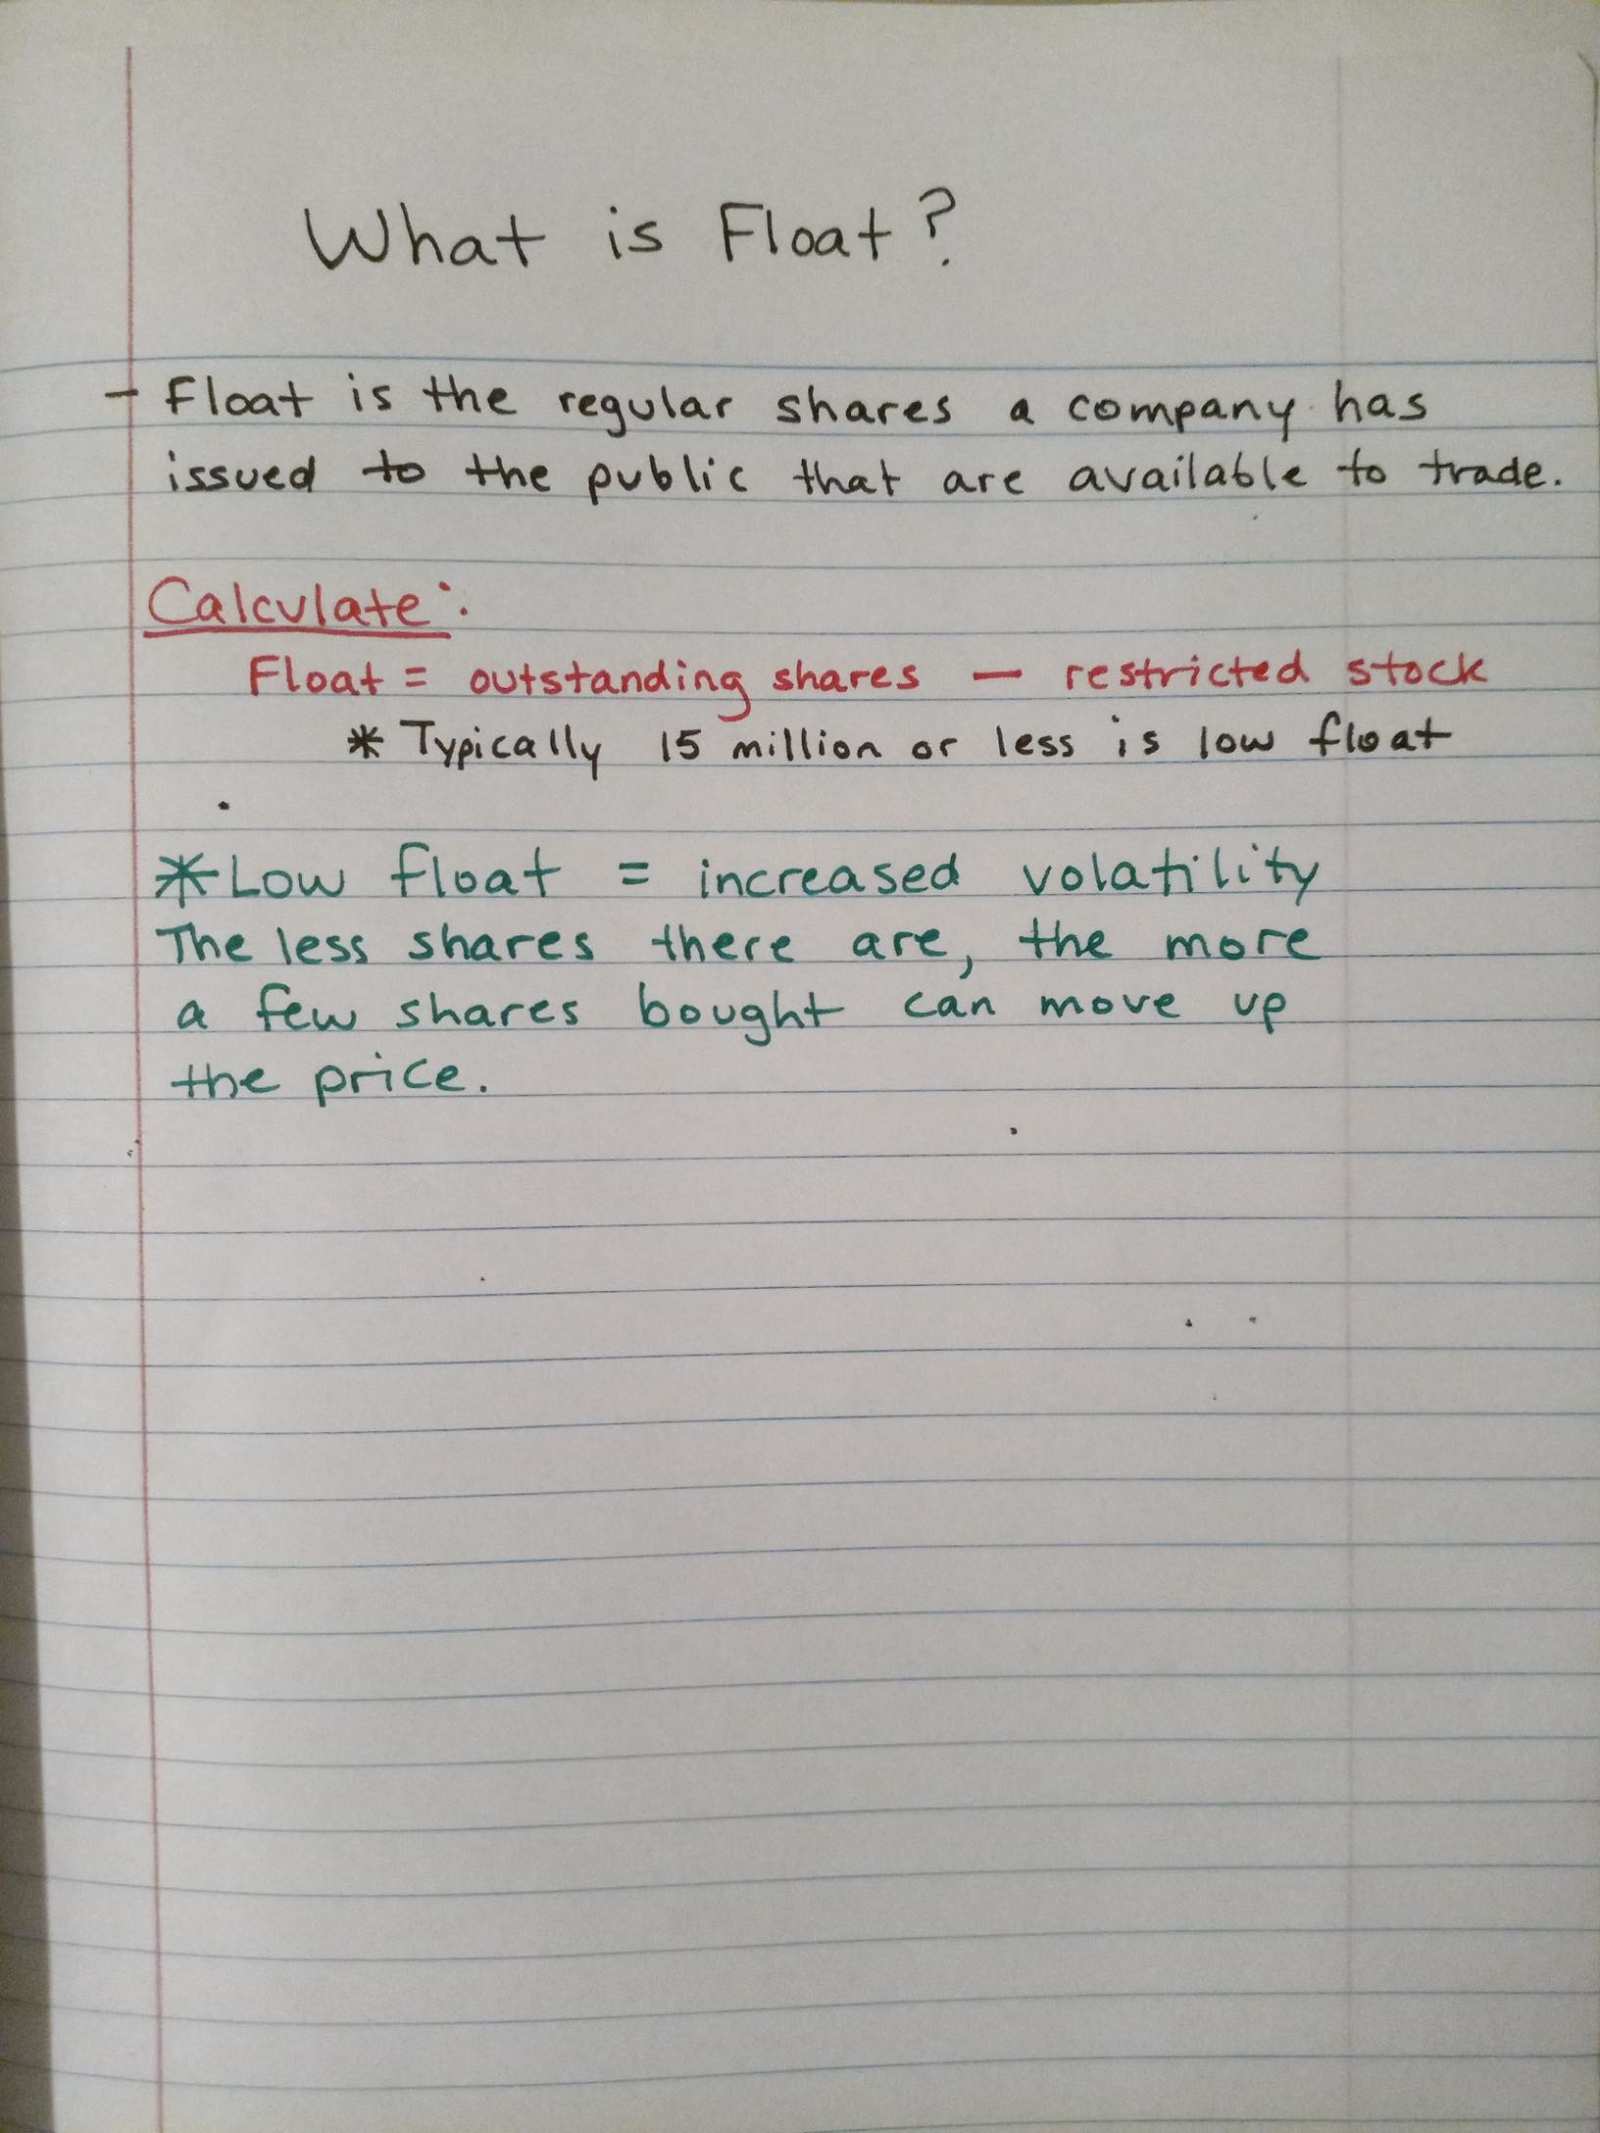 What is Float?
- Float is the regular shares a company has
issued to the public that are available to trade.
Calculate:
Float = outstanding shares — restricted stock
* Typically 15 million or less is low float
* Low float = increased volatility
The less shares there are, the more
a few shares bought can move up
the price.